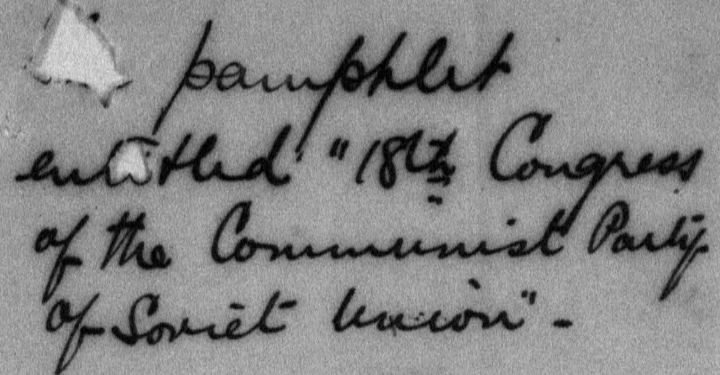 pamphlet
entitled "18th Congress
of the Communist Party
of Soviet Union" -